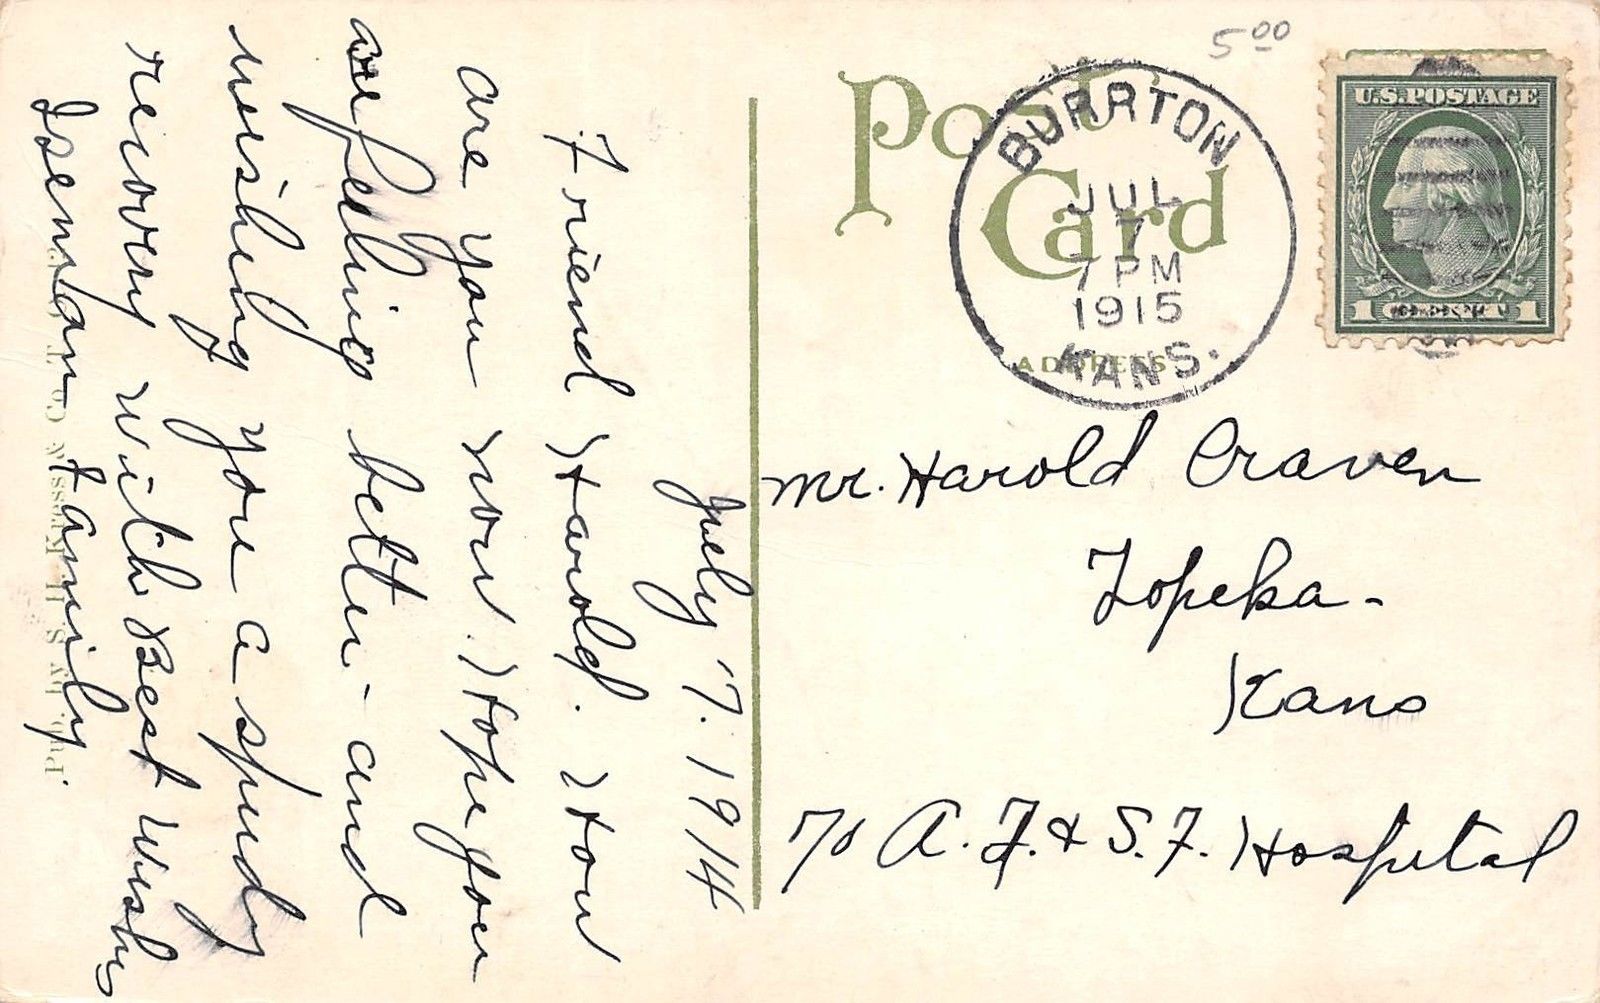 5⁰⁰
Post
Card
BURRTON
JUL
7
7 PM
1915
KANS.
U.S. POSTAGE
1 1
ADDRESS
Mr. Harold Craven
Topeka -
Kans
℅ A. T. & S. F. Hospital
July '7. 1914
Friend Harold. How
are you now. Hope you
are feeling better - and
wishing you a speedy
recovery with Best Wishes
Isenman family
Pub. by S. H. Kress & Co.